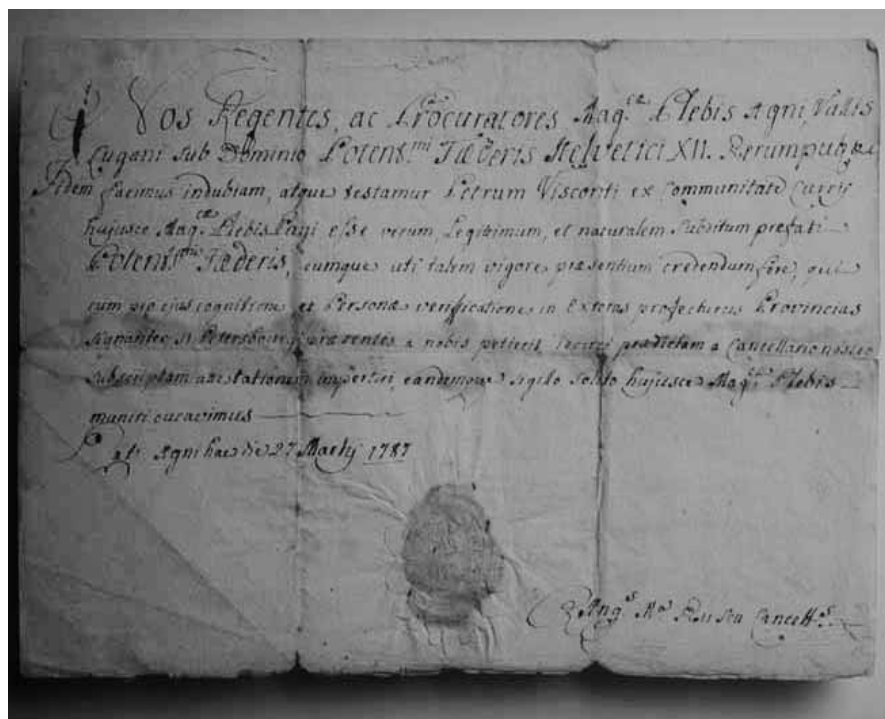 Nos Regentes, ac Procuratores Mag.cæ Plebis Agni, Vallis
Lugani sub Dominio Potent.mi Fœderis Helvetici XII. Rerumpub.
Fidem facimus indubiam, atque testamur Petrum Visconti ex Communitate Curij
hujusce Mag.cæ Plebis Pagi esse verum, Legitimum, et naturalem subditum præfati
Potent.mi Fœderis, eumque uti talem vigore præsentium credendum fore, qui
cum pro ejus cognitione, et Personæ verificatione in Exteras profecturus Provincias
signanter St Petersbourg præsentes a nobis petierit prædictam a Cancellario nostro
subscriptam attestationem impertiri eandemque sigillo solito hujusce Mag.cæ Plebis
muniri curavimus
Dat. Agni hac die 27 Martij 1787
Ang.s M.a Cancell.s